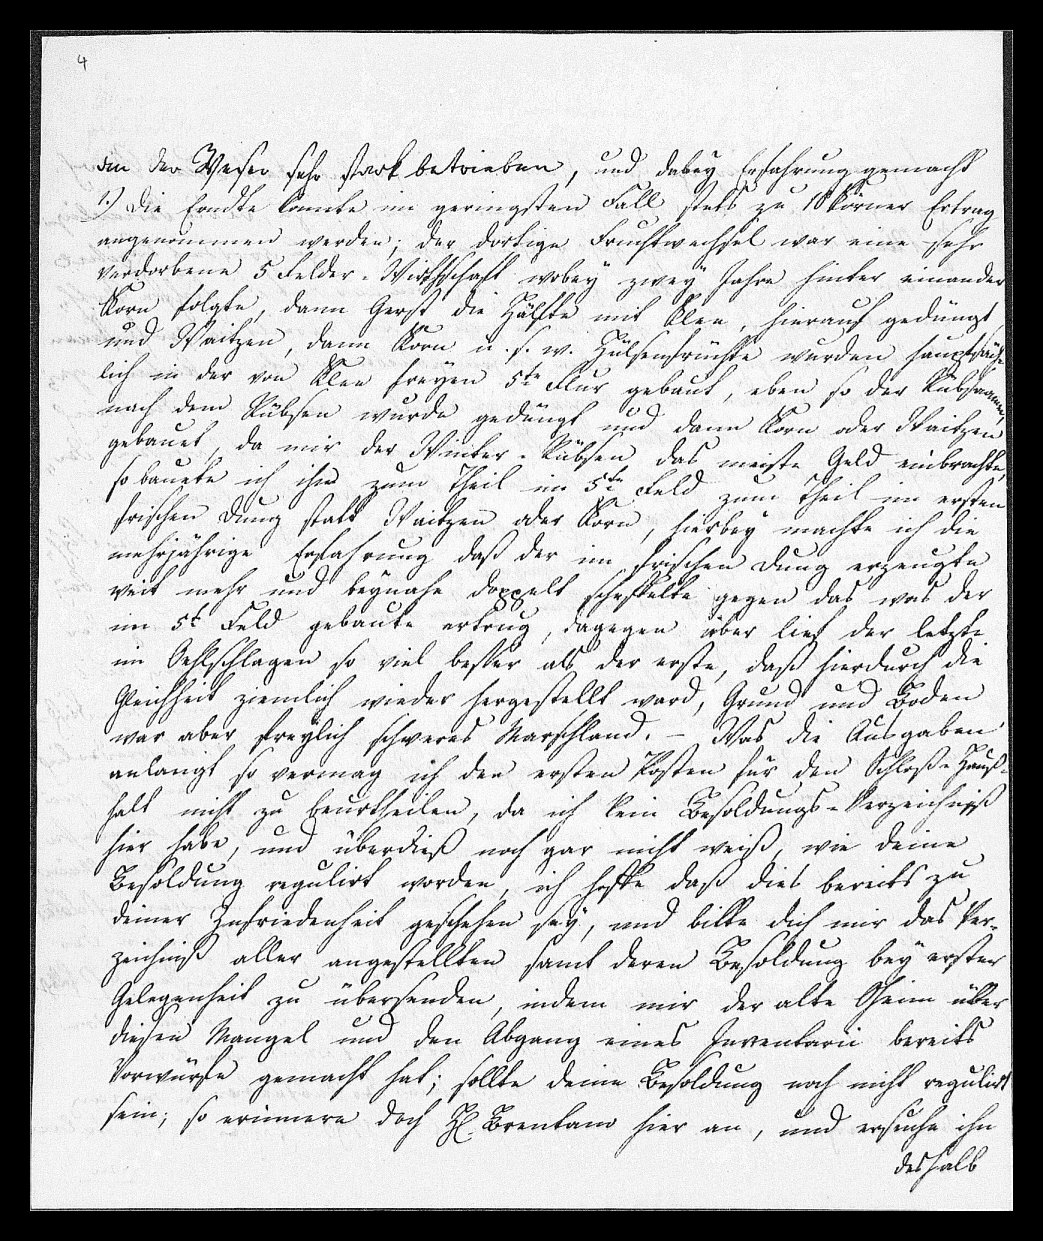 4
an der Weser sehr stark betrieben, und dabey Erfahrung gemacht
1.) Die Erndte konnte im geringsten Fall stets zu 10 Körner Ertrag
angenommen werden; der dortige Fruchtwechsel war eine sehr
verdorbene 5 Felder-Wirthschaft wobey zwey Jahre hinter einander
Korn folgte, dann Gerst die Hälfte mit Klee, hierauf gedüngt
und Waitzen, dann Korn u. s. w. Hülsenfrüchte wurden hauptsäch-
lich in der von Klee freyen 5te Flur gebaut, eben so der Rübsaamen,
nach dem Rübsen wurde gedüngt und dann Korn oder Waitzen
gebauet, da mir der Winter-Rübsen das meiste Geld einbrachte,
so bauete ich ihn zum Theil im 5ten Feld zum Theil im ersten
frischen Dung statt Waitzen oder Korn, hierbey machte ich die
mehrjährige Erfahrung daß der im frischen Dung erzeugte
weit mehr und beynahe doppelt scheffelte gegen das was der
im 5t Feld gebaute ertrug, dagegen aber lief der letzte
im Oehlschlagen so viel besser als der erste, daß hierdurch die
Gleichheit ziemlich wieder hergestellt ward, Grund und Boden
war aber freylich schweres Marschland. – Was die Ausgaben
anlangt so vermag ich den ersten Posten für den Schloß-Haus-
halt nicht zu beurtheilen, da ich kein Besoldungs-Verzeichniß
hier habe, und überdieß noch gar nicht weiß, wie deine
Besoldung regulirt worden, ich hoffe daß dies bereits zu
deiner Zufriedenheit geschehen sey, und bitte dich mir das Ver-
zeichniß aller angestellten samt deren Besoldung bey erster
Gelegenheit zu übersenden, indem mir der alte Oheim über
diesen Mangel und den Abgang eines Inventarii bereits
Vorwürfe gemacht hat; sollte deine Besoldung noch nicht regulirt
sein; so erinnere doch H. Brentano hier an, und ersuche ihn
deshalb